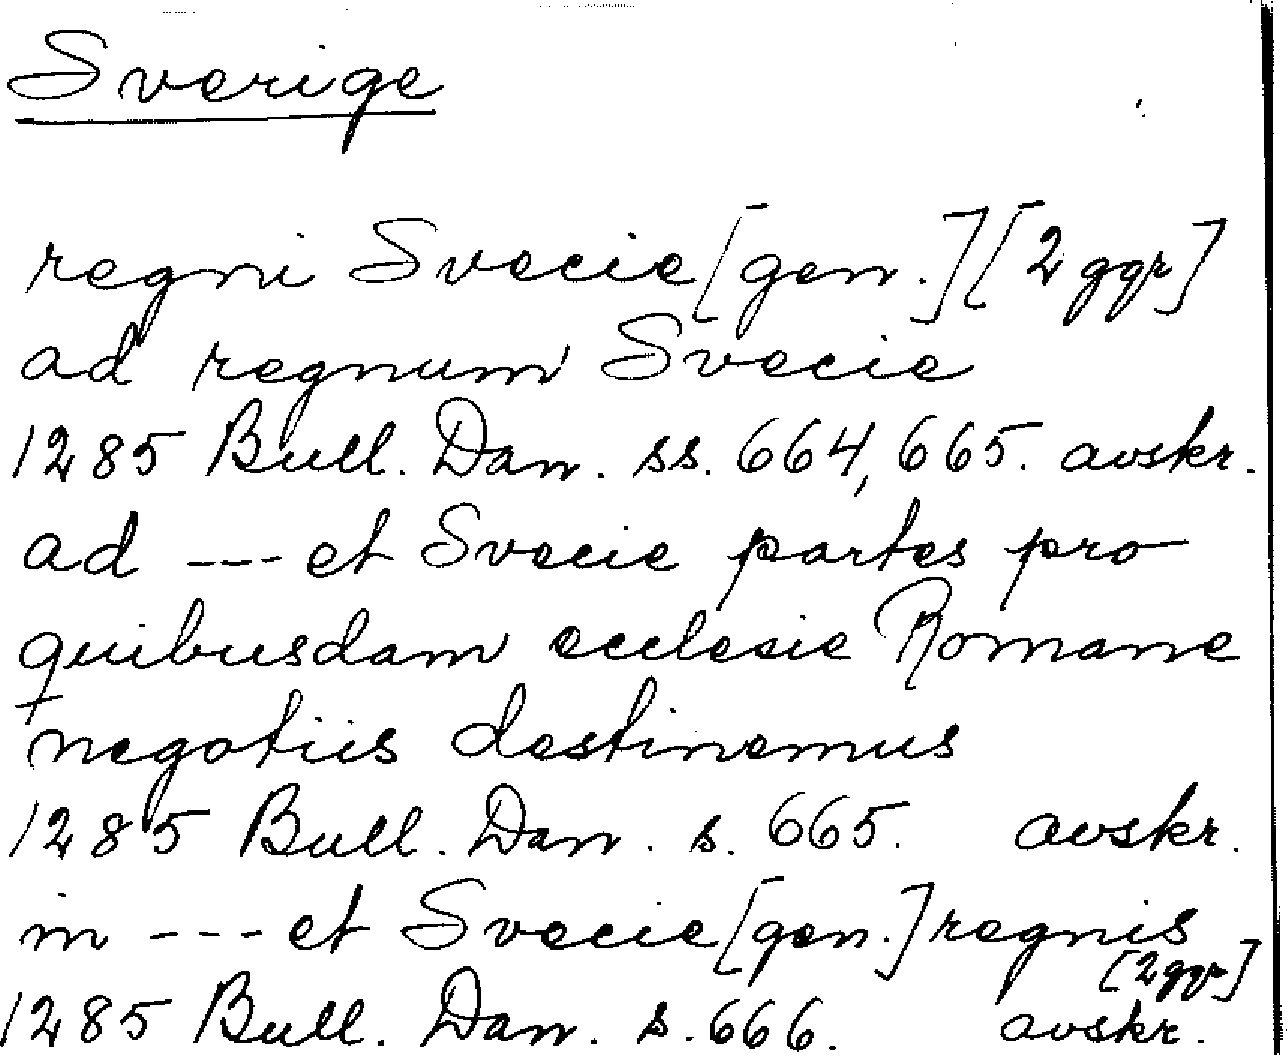 Sverige
regni Svecie [gen.] [2 ggr]
ad regnum Svecie
1285 Bull. Dan. ss. 664, 665. avskr.
ad --- et Svecie partes pro
quibusdam ecclesie Romane
negotiis destinemus
1285 Bull. Dan. s. 665. avskr.
in --- et Svecie [gen.] regnis
[2 ggr]
1285 Bull. Dan. s. 666. avskr.